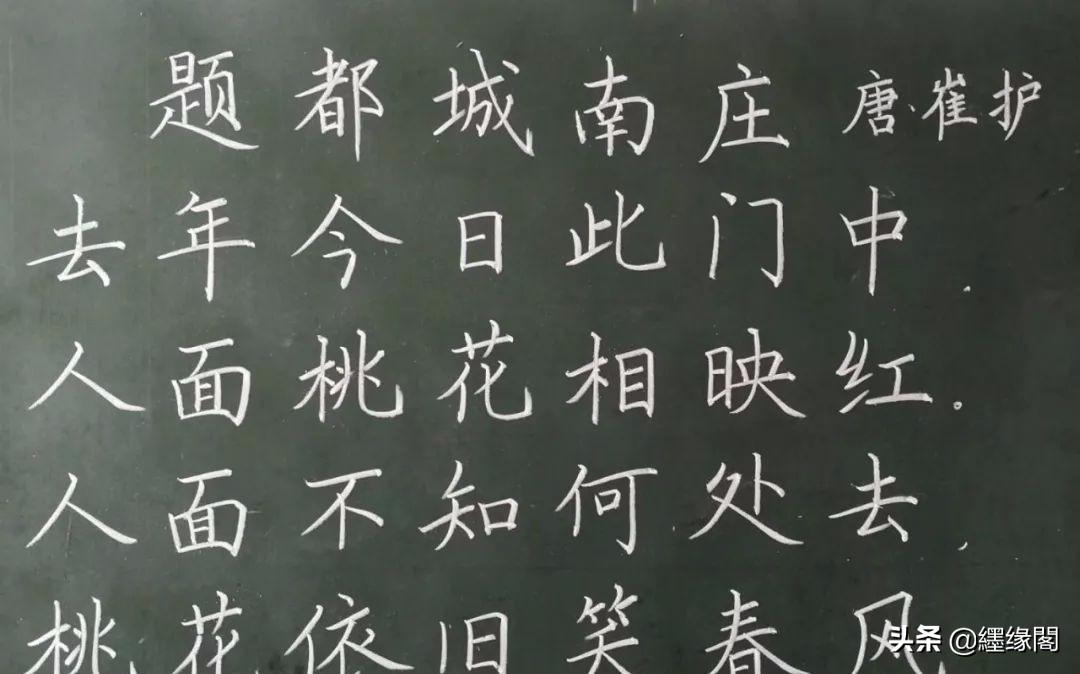 题都城南庄 唐·崔护
去年今日此门中，
人面桃花相映红。
人面不知何处去，
桃花依旧笑春风
头条 @纆缘閣